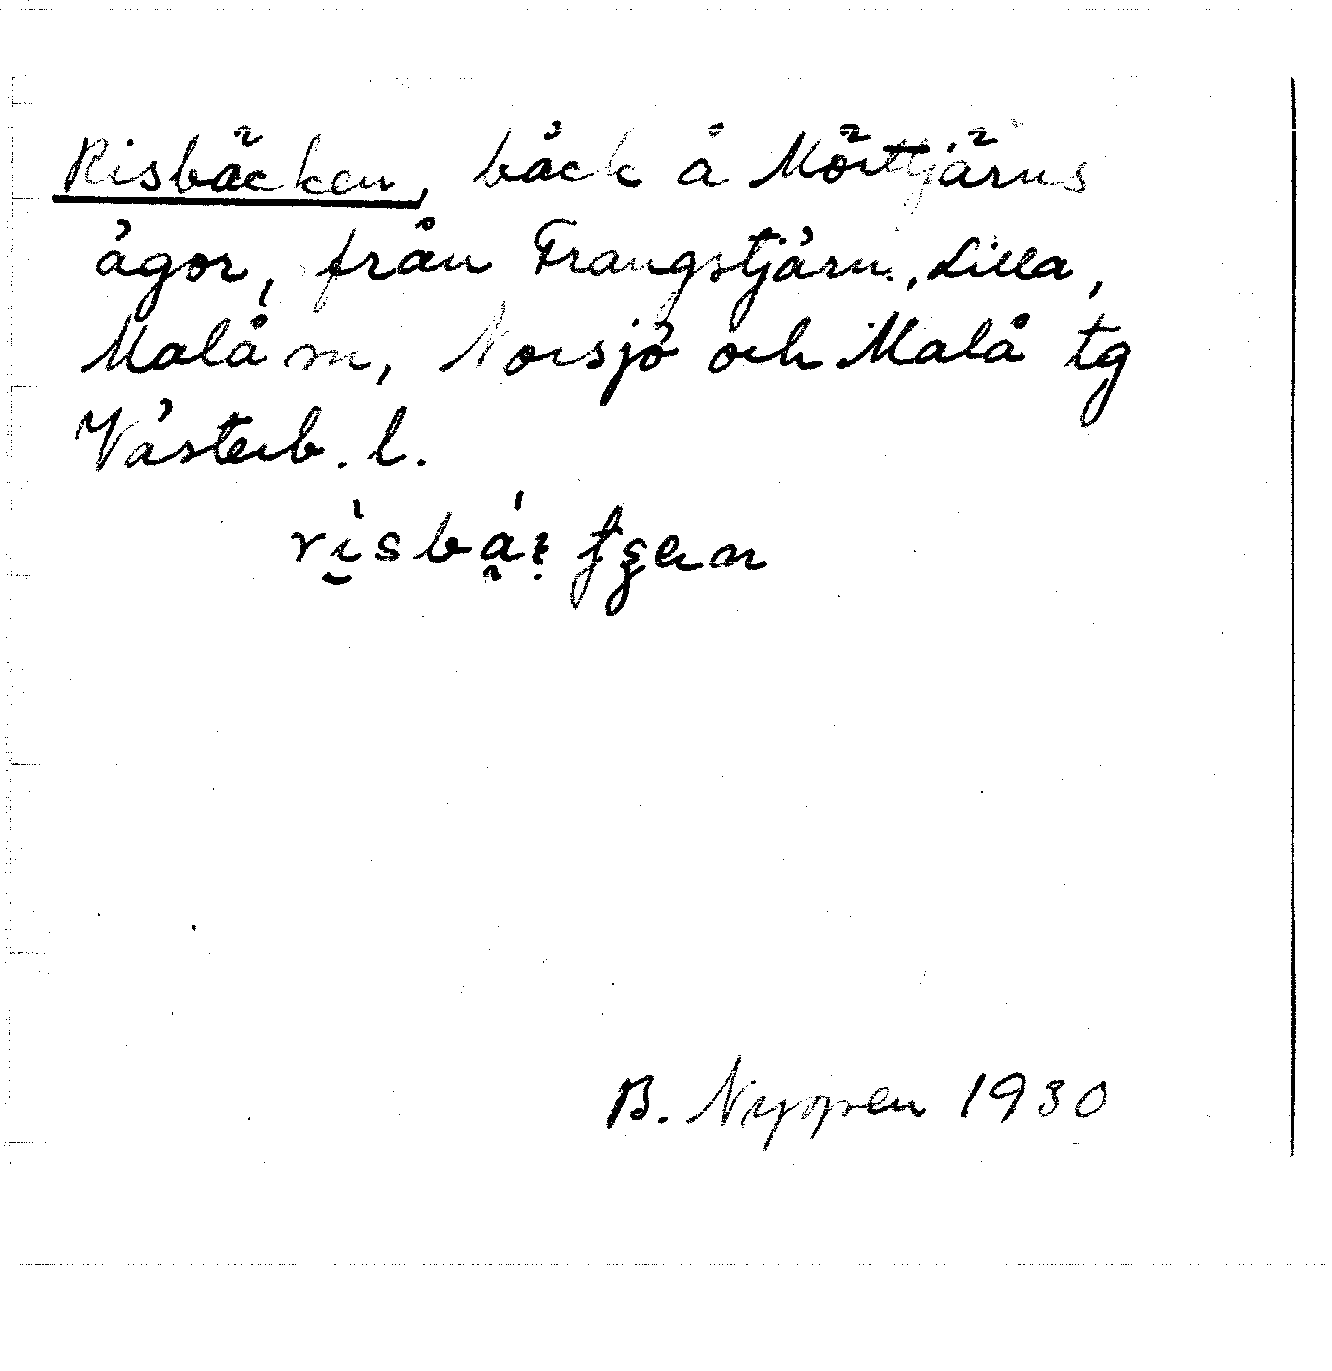 Risbäcken, bäck å Mörttjärns
ägor, från Frangstjärn, Lilla,
Malå m, Norsjö och Malå tg
Västerb. l.
B. Nyppen 1930